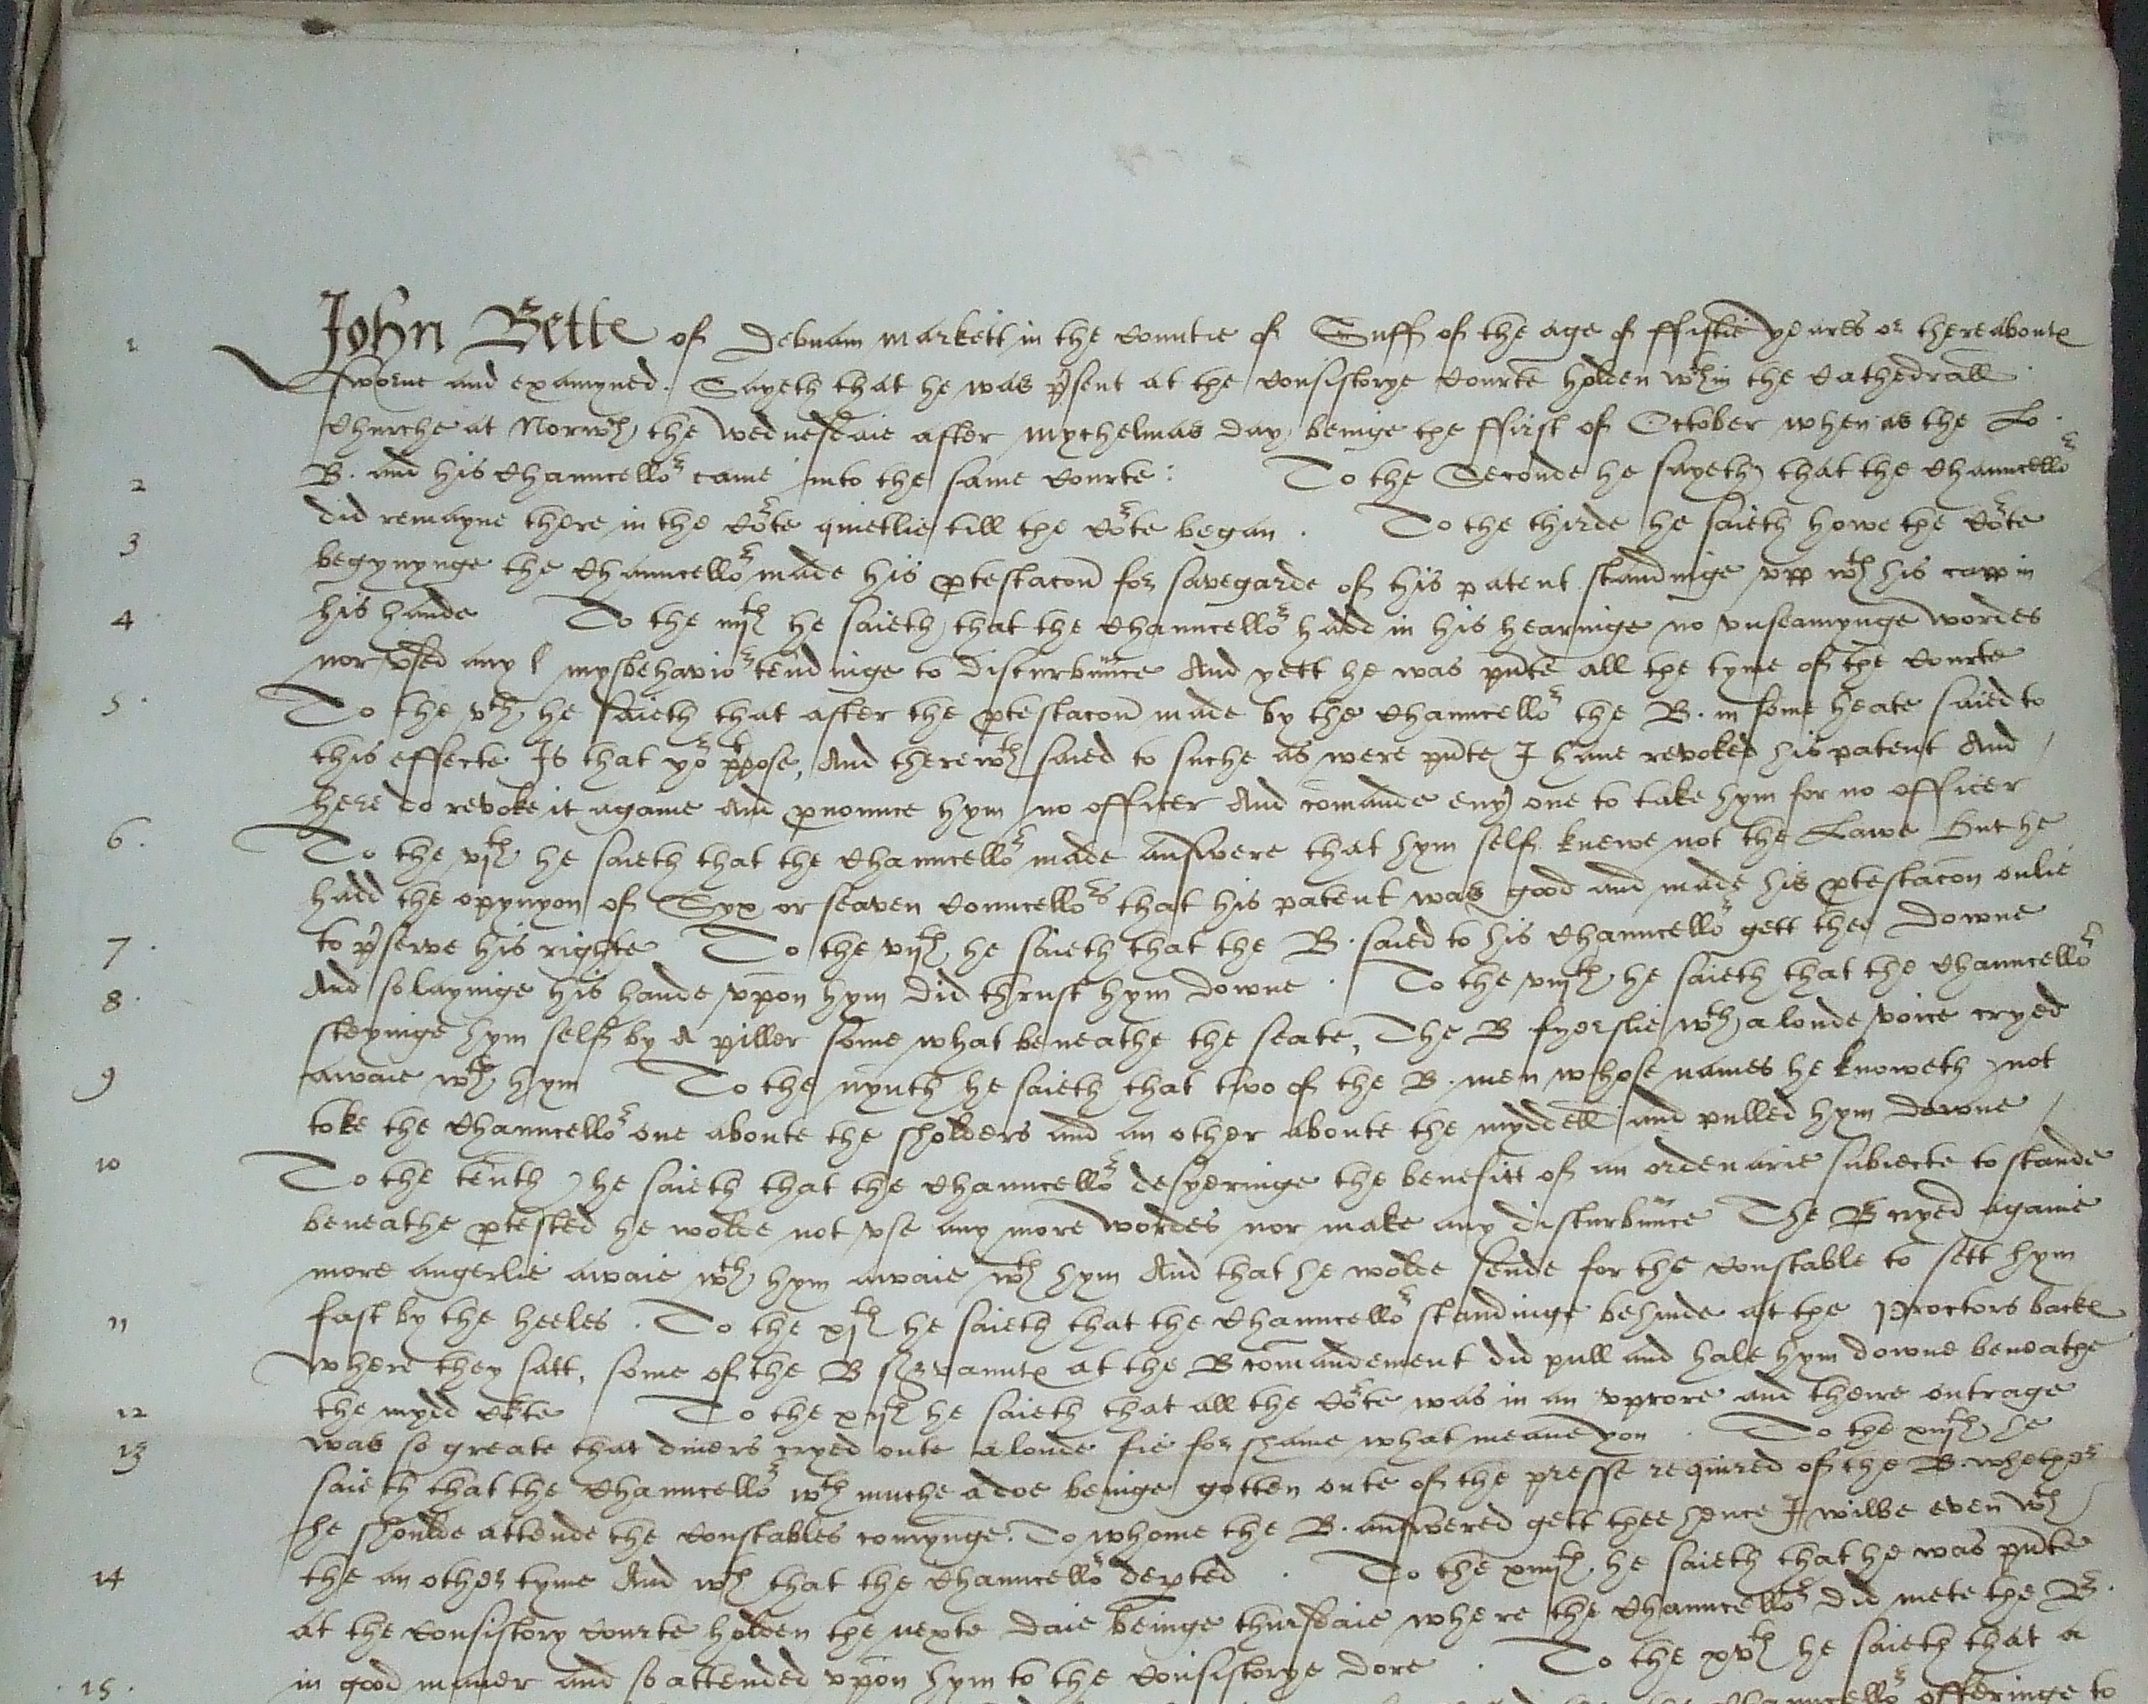 1 John Bette of Debnam markett in the Countie of Suff of the age of ffiftie yeares or thereaboute
sworne and examyned. Sayeth that he was psent at the Consistorye Courte holden wthin the Cathedrall
Churche at Norwch the wednesdaie after Mychelmas day beinge the ffirst of October when as the Lo.
2 B. and his Chauncellor came into the same Courte: To the Seconde he sayeth that the Chauncellor
did remayne there in the Corte quietlie till the Corte began. To the thirde he saieth howe the Corte
3 begynynge the Chauncellor made his ptestacon for savegarde of his patent standinge upp wth his capp in
4 his hande To the iiijth he saieth that the Chauncellor hadd in his hearinge no unseamynge wordes
nor used any mysbehavior tendinge to disturbunce And yett he was pnte all the tyme of the Courte
5. To the vth he saieth that after the ptestacon made by the Chauncellor the B. in some heate saied to
this effecte Is that yor ppose, And therewth saied to suche as were pnte I haue revoked his patent And
here do revoke it againe And pnounce hym no officer And comande eny one to take hym for no officer
6. To the vjth he saieth that the Chauncellor made answere that hym self knewe not the Lawe But he
hadd the opynyon of Syx or seaven Councellors that his patent was good and made his ptestacon onlie
7. to pserve his righte To the vijth he saieth that the B. saied to his Chauncellor gett the downe
8. And so layinge his hande upon hym did thrust hym downe. To the viijth he saieth that the Chauncellor
steyinge hym self by A piller some what beneathe the seate, The B fyerslie wth a loude voice cryed
9 awaie wth hym To the nynth he saieth that two of the B. men whose names he knoweth not
toke the Chauncellor one aboute the sholders and an other aboute the myddell and pulled hym downe
10 To the tenth he saieth that the Chauncellor desyeringe the benefitt of an ordenarie subiecte to stande
beneathe ptested he wolde not use any more wordes nor make any disturbunce The B cryed againe
more angerlie awaie wth hym awaie wth hym And that he wolde sende for the Constable to sett hym
11 fast by the heeles. To the xjth he saieth that the Chauncellor standinge behinde at the Proctors backe
where they satt, some of the B servaunte at the B comandement did pull and hale hym downe beneathe
12 the mydd Corte To the xijth he saieth that all the Corte was in an uprore and there outrage
13 was so greate that diuers cryed oute aloude fie for shame what meane you. To the xiijth he
saieth that the Chauncellor wth muche adoe beinge gotten oute of the presse required of the B. whether
he shoulde attende the Constables comynge. To whome the B. answered gett thee hence I wilbe even wth
14 the an other tyme And wth that the Chauncellor depted. To the xiiijth he saieth that he was pnte
at the Consistory Courte holden the nexte daie beinge thursdaie where the Chauncellor did mete the B.
15. in good maner and so attended upon hym to the Consistorye dore. To the xvth he saieth that a
Chauncellor offeringe to